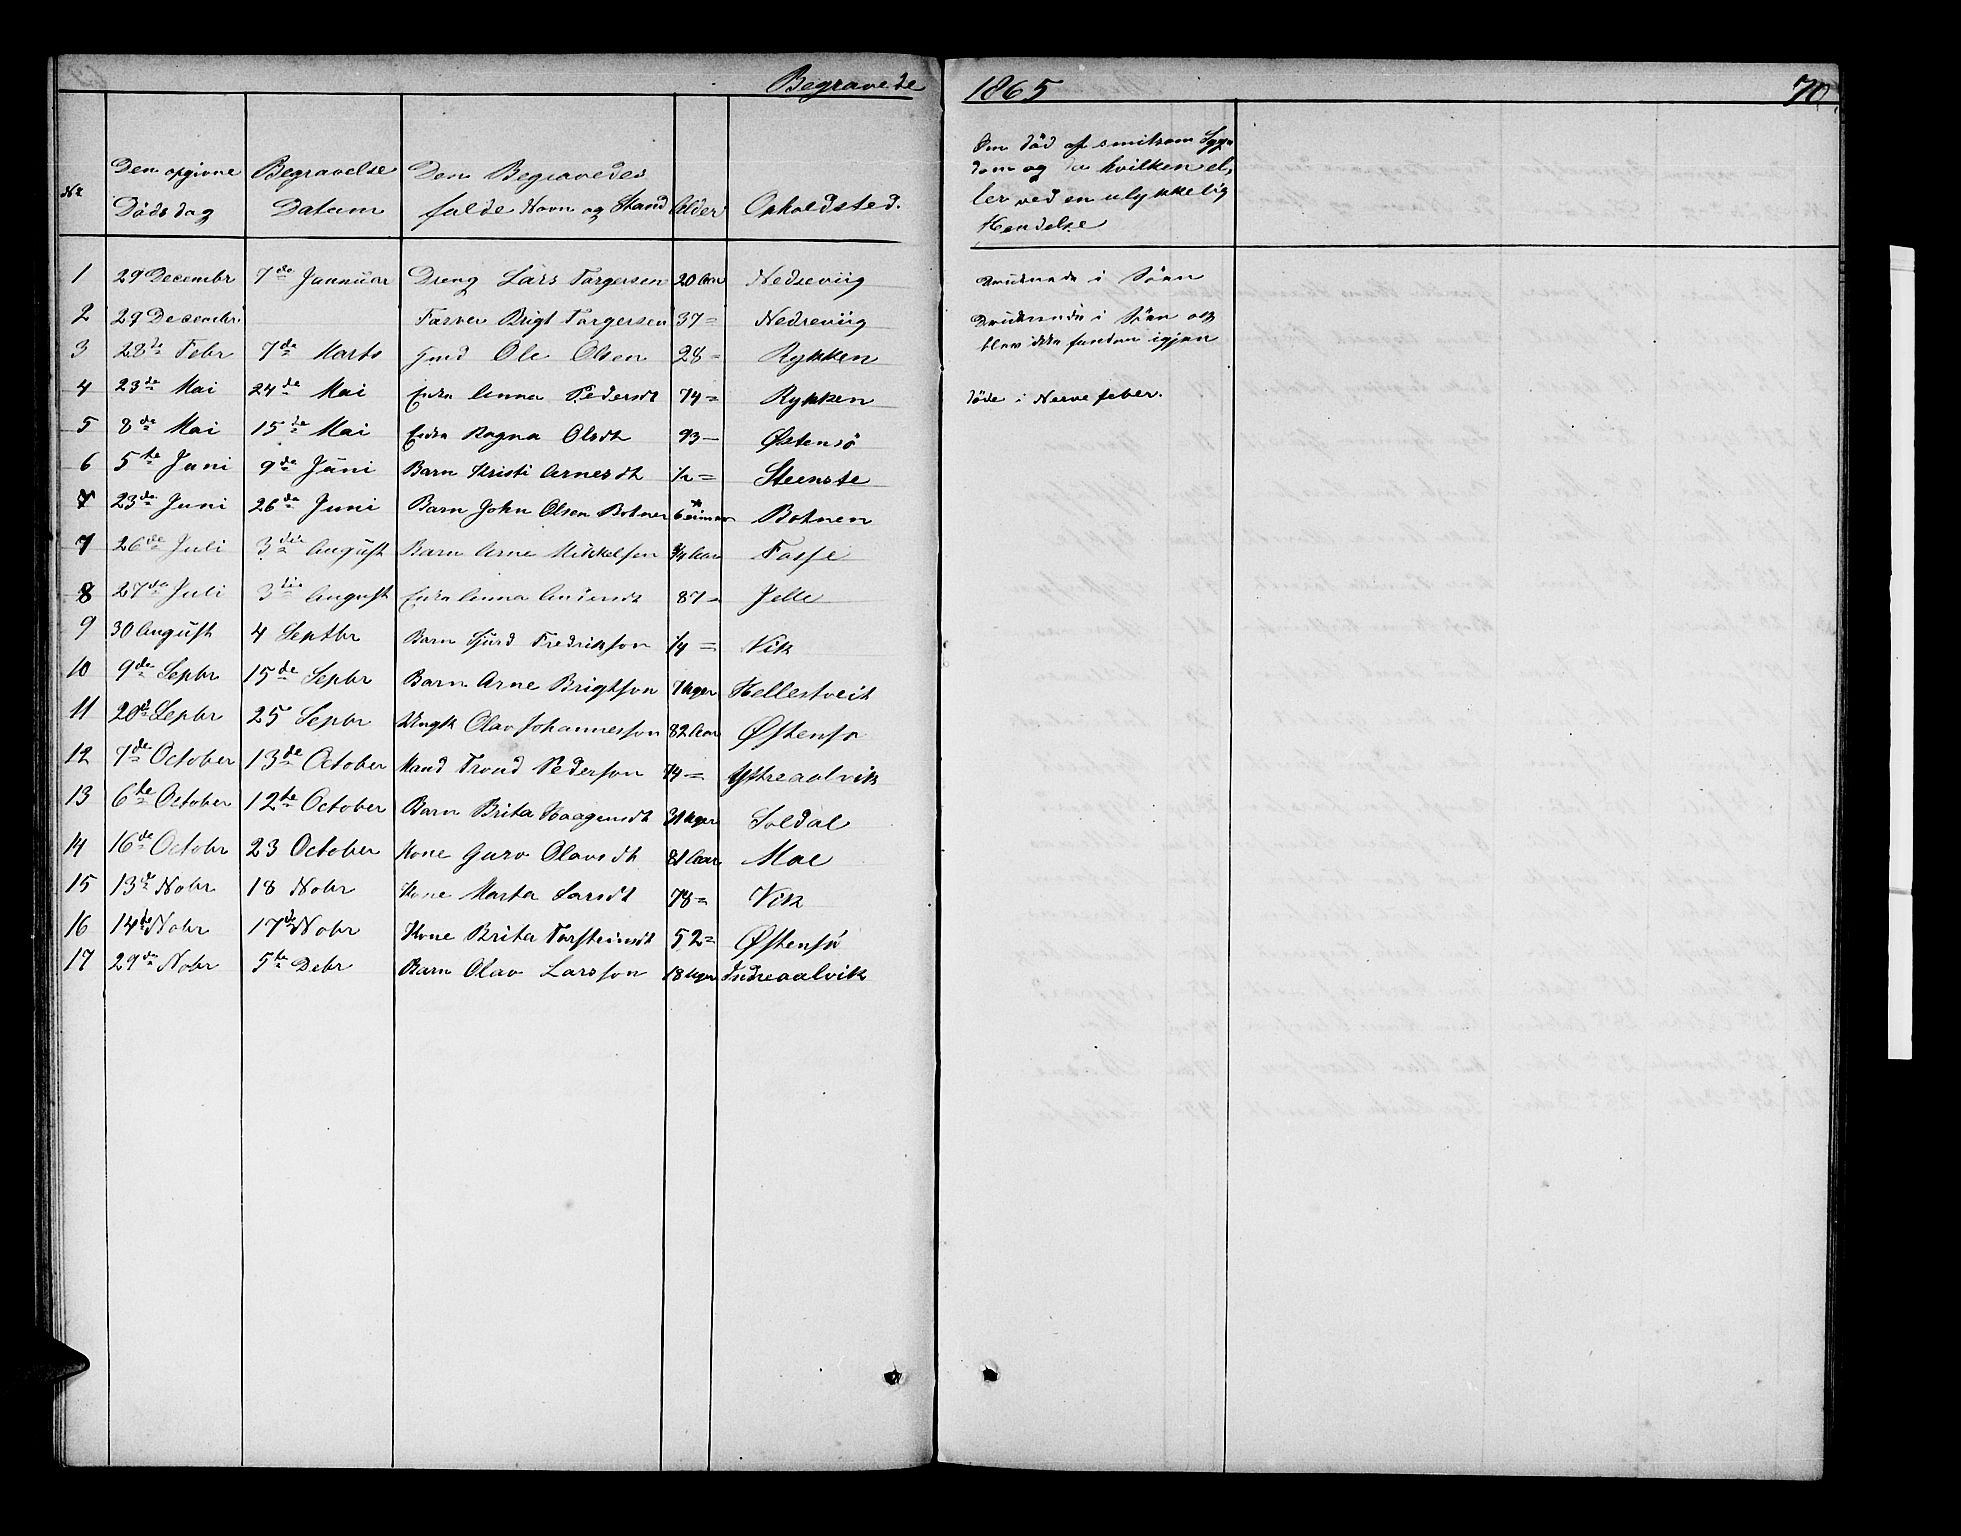 Begravede 1865 70.
No Den opgivne Dödsdag Begravelse Datum Den Begravedes fulde Navn og Stand Alder Opholdsted. Om död af smitsom Sygdom og da hvilken eller ved en ulykkelig Hendelse
1 29 Decembr 7de Jannuar Dreng Lars Torgersen 20 Aar Nedreviig Druknede i Söen
2 29 Decembr Brigt Torgersen 37 = Nedreviig Druknede i Söen og blev ikke funden igjen
3 28de Febr 7de Marts Ole Olsen 28 = Rykken
4 23de Mai 24de Mai Enke Anna Pedersdt 74 = Rykken döde i Nervefeber.
5 8de Mai 15de Mai Enke Ragna Olsdt 93 — Østensö
6 5te Juni 9de Juni Barn Kristi Arnesdt ½ = Steinstø
7 23de Juni 26de Juni Barn John Olsen Botnen 6 Botnen
7 26de Juli 3die August Barn Arne Mikkelson ¾ Aar Fosse
8 27de Juli 3die August Enke Anna 87 = Jelle
9 30 August 4 Septbr Barn Sjurd Fredrikson ¼ = Vik
10 9de Sepbr 15de Sepbr Barn Arne Brigtson 7 Uger Hellestveit
11 20de Sepbr 25 Sepbr Olav Johannesson 82 Aar Østensø
12 7de October 13de October Mand Trond Pederson 74 = Ystreaalvik
13 6te October 12te October Barn Brita Haagensdt Uger Soldal
14 16de Octobr 23 October Kone Guro Olavsdt 81 Aar Moe
15 13de Nobr 18 Nobr Kone Marta Larsdt 78 = Vik
16 14de Nobr 17de Nobr Kone Brita Torsteinsdt 52 = Østensö
17 29de Nobr 5te Debr Barn Olav Larsson 18 Uger Indreaalvik